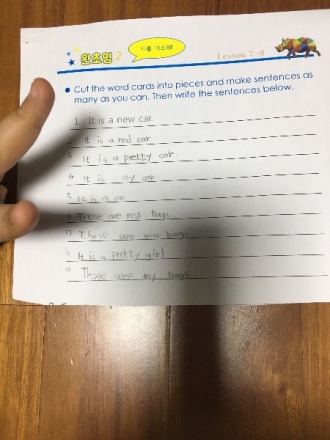 완초영 2
Lesson 7-8
Cut the word cards into pieces and make sentences as
many as you can. Then write the sentences below.
1. It is a new car.
It is a red car
3 It is a pretty car.
4 It is my car
5 It is a car
These are red bags
7 These are new bags
It is a pretty girl
9 These are my bags.